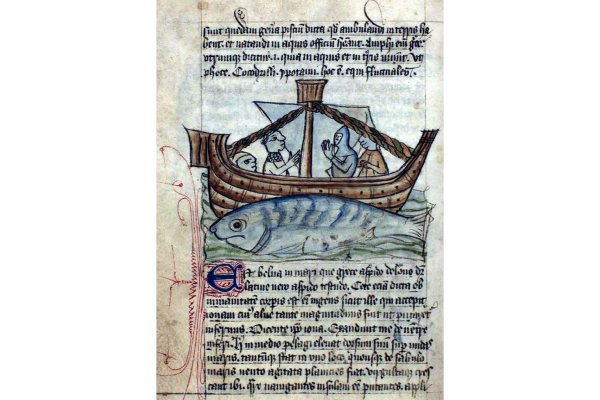 sunt quedam gen̄a pisciū dicta qd ambulandi in terris ha
bent. et natandi in aquis officiū hēant. Amphi em̄ grece
utrumque dicitur .i. quia in aquis et in t̄ris uiuūt. Vt
phoce. Cocodrilli. ypotami. hoc ē. equi fluctuales.
Est belua in mari que grece aspido delone dr̄
latine vero aspido testudo. Cete eciā dicta ob
inmanitatē corpis est em̄ ingens sicut ille qui excepit
ionam cuiꝰ aluꝰ tante magnitudinis fuit ut putaret
infernus. Dicente ip̄o iona. Exaudiuit me de uentre
inferi. Hec in medio pelagi eleuat dorsum suū sup̄ undas
maris. tantūque stat in uno loco. quousque de sabulo
maris uento agitata planicies fiat. uirgultaque cres
cant ibi. Qr̄e nauigantes insulam eē putantes. appli